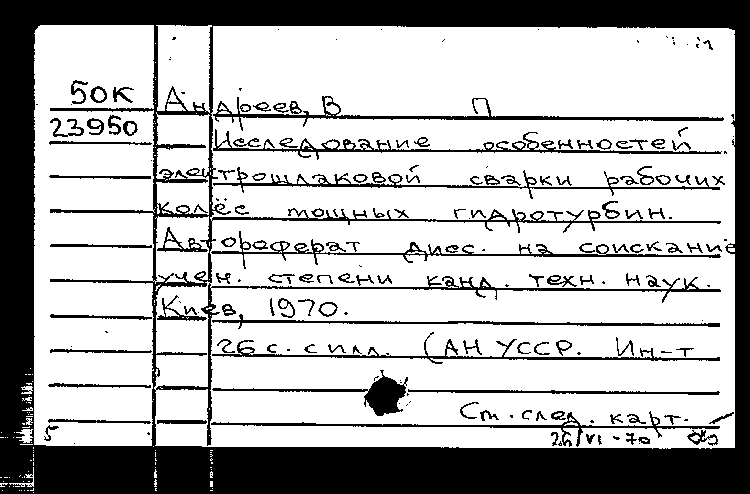 50К Андреев, В П
23950 Исследование особенностей
электрошлаковой сварки рабочих
колёс мощных гидротурбин.
Автореферат дисс. на соискание
учен. степени канд. техн. наук.
Киев, 1970.
26 с. с илл. (АН УССР. Ин-т
См. след. карт.
5 26/VI-70